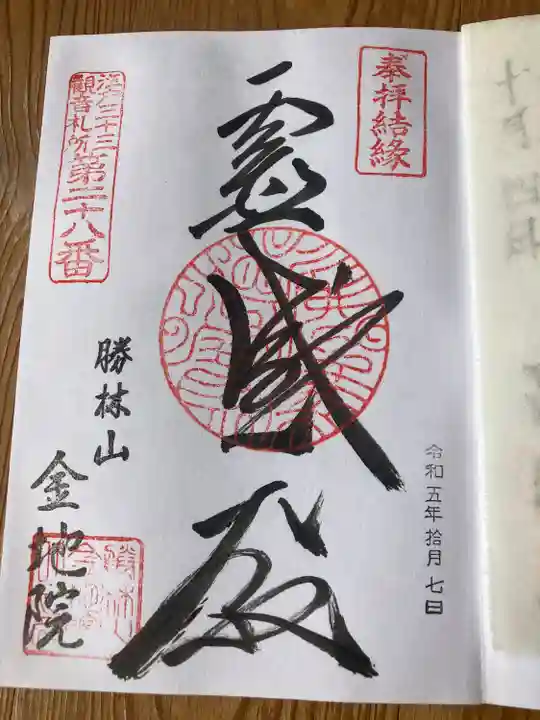 奉拝結縁
令和五年拾月七日
霊感殿
江戸三十三
觀音札所
第二十八番
勝林山
金地院